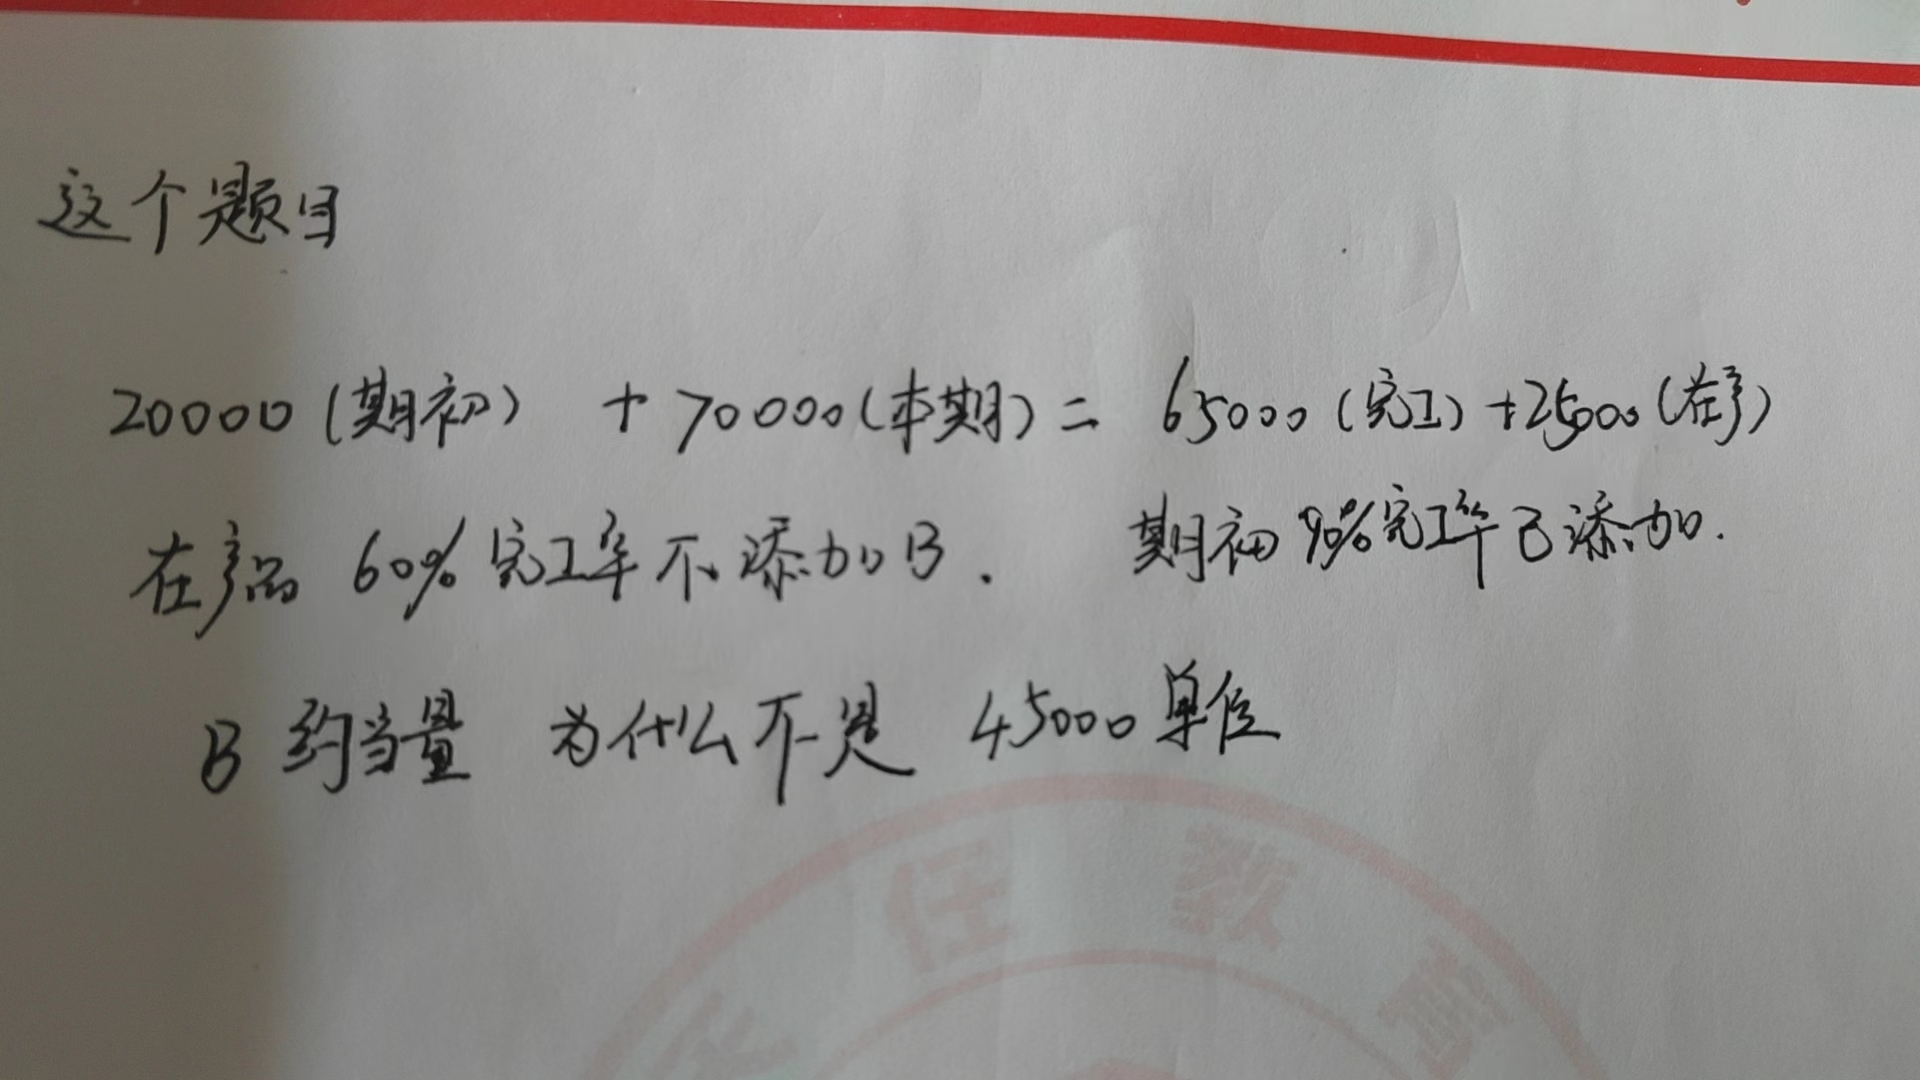 这个题目
20000(期初) + 70000(本期) = 65000(完工)+25000(在产)
在产品 60%完工率不添加B. 期初90%完工率已添加.
B 约当量 为什么不是 45000单位
任 教